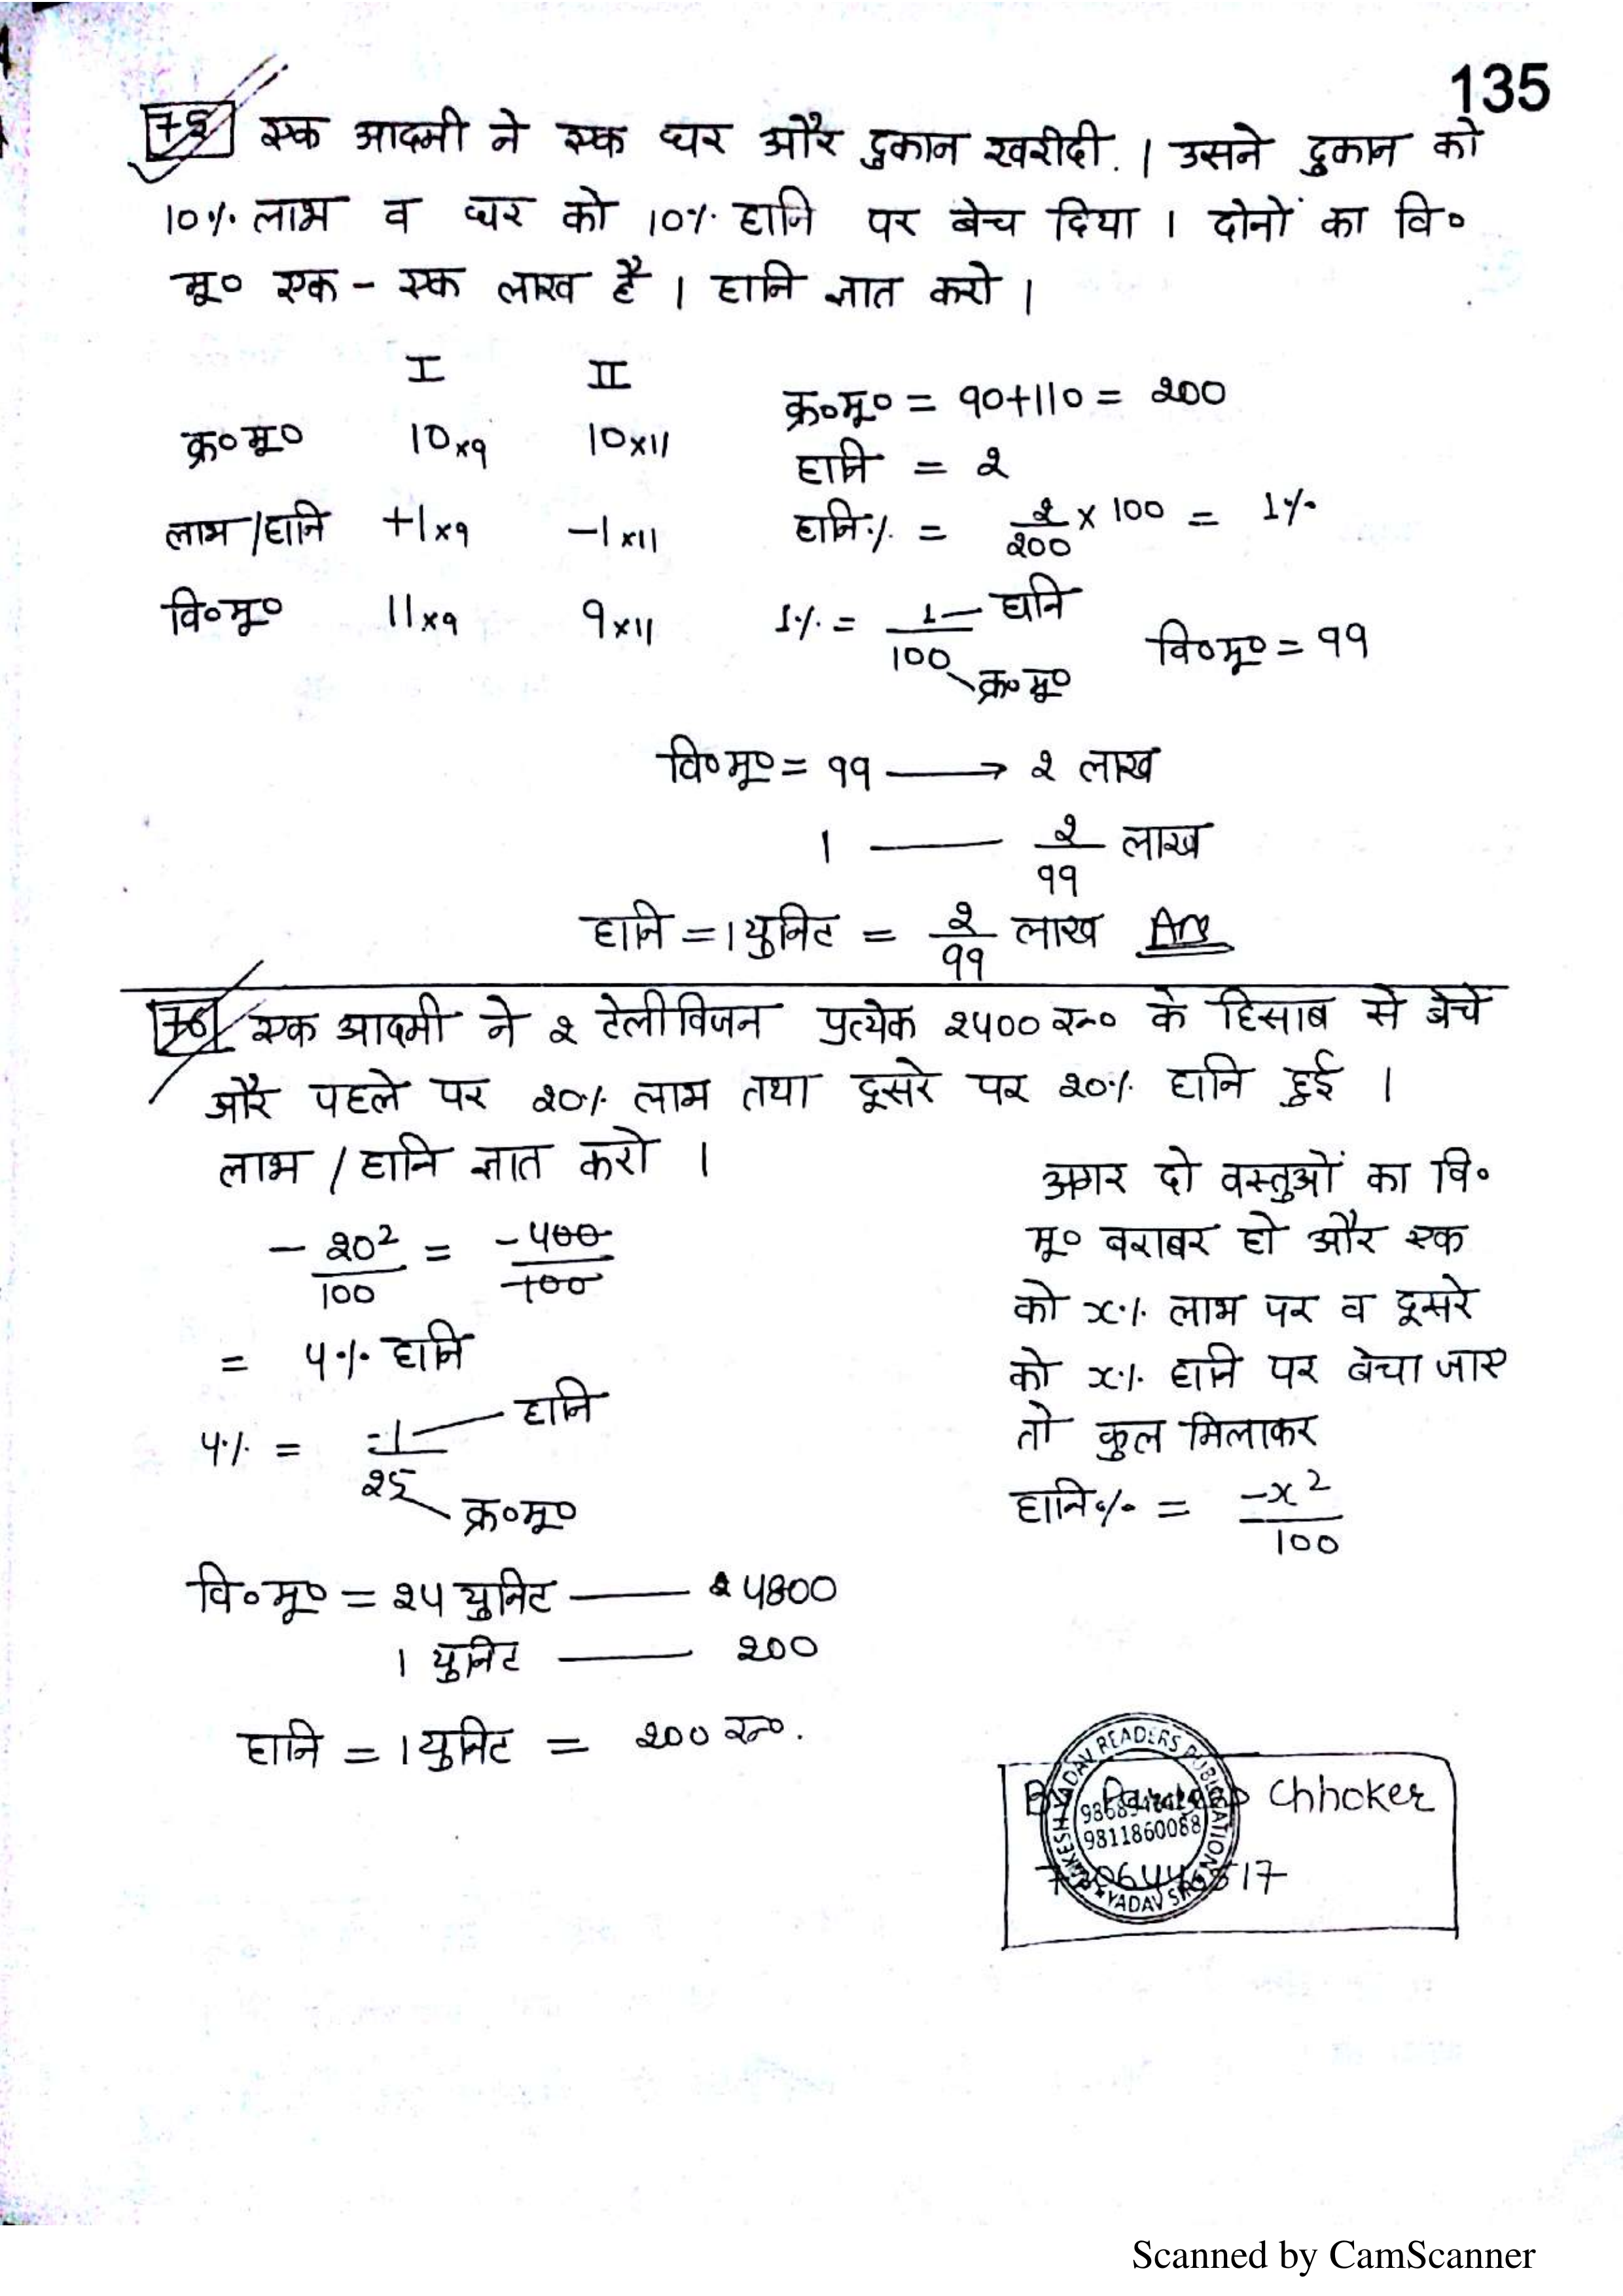 135
75 एक आदमी ने एक घर और दुकान खरीदी. । उसने दुकान को
10% लाभ व घर को 10% हानि पर बेच दिया । दोनों का वि०
मू० एक - एक लाख है । हानि ज्ञात करो ।
I II
क्र०मू० 10×9 10×11
लाभ/हानि +1×9 -1×11
वि०मू० 11×9 9×11
क्र०मू० = 90+110 = 200
हानि = 2
हानि% = 2/200 × 100 = 1%
1% = 1/100 हानि क्र०मू० वि०मू० = 99
वि०मू० = 99 → 2 लाख
1 — 2/99 लाख
हानि = 1 युनिट = 2/99 लाख Ans
76 एक आदमी ने 2 टेलीविजन प्रत्येक 2400 रू० के हिसाब से बेचे
और पहले पर 20% लाभ तथा दूसरे पर 20% हानि हुई ।
लाभ / हानि ज्ञात करो ।
- 20²/100 = -400/100
= 4% हानि
4% = -1/25 हानि क्र०मू०
वि०मू० = 24 युनिट — 4800
1 युनिट — 200
हानि = 1 युनिट = 200 रू०.
अगर दो वस्तुओं का वि०
मू० बराबर हो और एक
को x% लाभ पर व दूसरे
को x% हानि पर बेचा जाए
तो कुल मिलाकर
हानि% = -x²/100
By Chhoker
READERS PUBLICATION
9811860088
Scanned by CamScanner